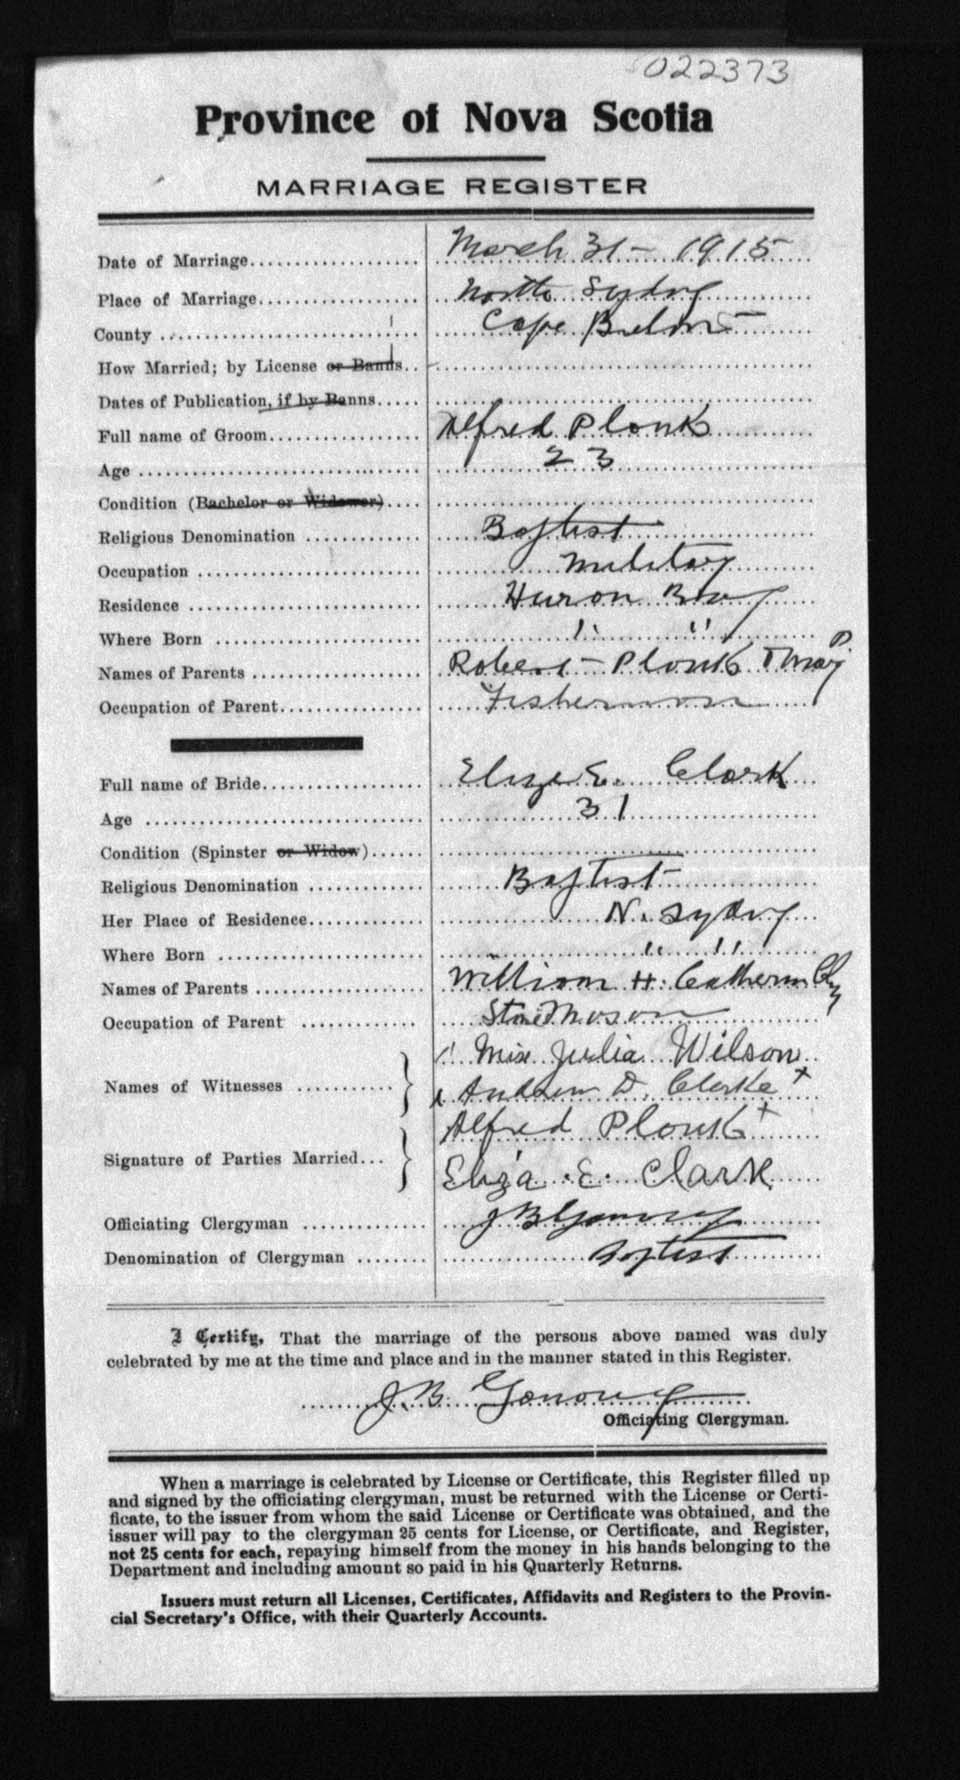 022373
Province of Nova Scotia
MARRIAGE REGISTER
Date of Marriage.................... March 31 - 1915
Place of Marriage.................. North Sydney
County ............................ Cape Breton
How Married; by License or Banns..
Dates of Publication, if by Banns.....
Full name of Groom.................. Alfred Plonk
Age ............................... 23
Condition (Bachelor or Widower)....
Religious Denomination ............. Baptist
Occupation ......................... Military
Residence .......................... Huron Bay
Where Born ........................ " "
Names of Parents ................... Robert Plonk Mary P
Occupation of Parent................ Fisherman
Full name of Bride.................. Eliza E. Clark
Age ............................... 31
Condition (Spinster or Widow)......
Religious Denomination ............. Baptist
Her Place of Residence............. N. Sydney
Where Born ........................ " "
Names of Parents ................... William H. Catherine
Occupation of Parent ............... Stone Mason
Names of Witnesses ............ } Miss Julia Wilson
Andrew D. Clarke x
Signature of Parties Married... } Alfred Plonk x
Eliza E. Clark
Officiating Clergyman .............. J B
Denomination of Clergyman ........ Baptist
I Certify, That the marriage of the persons above named was duly
celebrated by me at the time and place and in the manner stated in this Register.
J. B.
Officiating Clergyman.
When a marriage is celebrated by License or Certificate, this Register filled up
and signed by the officiating clergyman, must be returned with the License or Certi-
ficate, to the issuer from whom the said License or Certificate was obtained, and the
issuer will pay to the clergyman 25 cents for License, or Certificate, and Register,
not 25 cents for each, repaying himself from the money in his hands belonging to the
Department and including amount so paid in his Quarterly Returns.
Issuers must return all Licenses, Certificates, Affidavits and Registers to the Provin-
cial Secretary's Office, with their Quarterly Accounts.